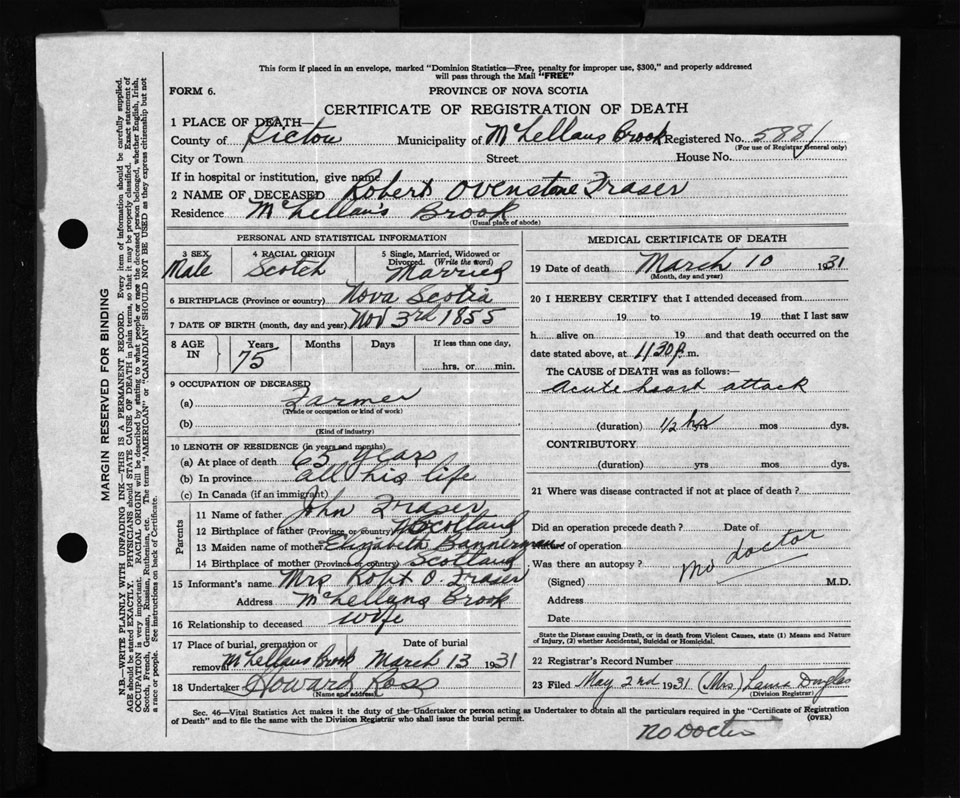 This form if placed in an envelope, marked "Dominion Statistics—Free, penalty for improper use, $300," and properly addressed
will pass through the Mail "FREE"
FORM 6.
PROVINCE OF NOVA SCOTIA
CERTIFICATE OF REGISTRATION OF DEATH
1 PLACE OF DEATH—
County of Pictou Municipality of McLellans Brook Registered No. 5881
(For use of Registrar General only)
City or Town Street House No.
If in hospital or institution, give name
2 NAME OF DECEASED Robert Ovenstone Fraser
Residence McLellan's Brook
(Usual place of abode)
PERSONAL AND STATISTICAL INFORMATION
3 SEX 4 RACIAL ORIGIN 5 Single, Married, Widowed or
Divorced. (Write the word)
Male Scotch Married
6 BIRTHPLACE (Province or country) Nova Scotia
7 DATE OF BIRTH (month, day and year) Nov 3rd 1855
8 AGE IN Years Months Days If less than one day,
75 hrs. or min.
9 OCCUPATION OF DECEASED
(a) Farmer
(Trade or occupation or kind of work)
(b)
(Kind of industry)
10 LENGTH OF RESIDENCE (in years and months)
(a) At place of death 65 years
(b) In province all his life
(c) In Canada (if an immigrant)
Parents
11 Name of father John Fraser
12 Birthplace of father (Province or country) Scotland
13 Maiden name of mother Elizabeth Bannerman
14 Birthplace of mother (Province or country) Scotland
15 Informant's name Mrs Robt O. Fraser
Address McLellans Brook
16 Relationship to deceased wife
17 Place of burial, cremation or Date of burial
removal McLellans Brook March 13 1931
18 Undertaker Howard Ross
(Name and address)
MEDICAL CERTIFICATE OF DEATH
19 Date of death March 10 1931
(Month, day and year)
20 I HEREBY CERTIFY that I attended deceased from
19 to 19 that I last saw
h alive on 19 and that death occurred on the
date stated above, at 1130 p.m.
The CAUSE of DEATH was as follows:—
Acute heart attack
(duration) 1/2 hrs yrs mos dys.
CONTRIBUTORY
(duration) yrs mos dys.
21 Where was disease contracted if not at place of death?
Did an operation precede death? Date of
Nature of operation
Was there an autopsy? no doctor
(Signed) M.D.
Address
Date
State the Disease causing Death, or in death from Violent Causes, state (1) Means and Nature
of Injury, (2) whether Accidental, Suicidal or Homicidal.
22 Registrar's Record Number
23 Filed May 2nd 1931 (Mrs) Lama Douglas
(Division Registrar)
Sec. 46—Vital Statistics Act makes it the duty of the Undertaker or person acting as Undertaker to obtain all the particulars required in the "Certificate of Registration
of Death" and to file the same with the Division Registrar who shall issue the burial permit.
(OVER)
No Doctor
MARGIN RESERVED FOR BINDING
N.B.—WRITE PLAINLY WITH UNFADING INK—THIS IS A PERMANENT RECORD. Every item of information should be carefully supplied.
AGE should be stated EXACTLY. PHYSICIANS should STATE CAUSE OF DEATH in plain terms, so that it may be properly classified. Exact statement of
OCCUPATION is very important. RACIAL ORIGIN will be described by stating to what people or race the deceased person belonged, whether English, Irish,
Scotch, French, German, Russian, Ruthenian, etc. The terms "AMERICAN" or "CANADIAN" SHOULD NOT BE USED as they express citizenship but not
a race or people. See instructions on back of Certificate.